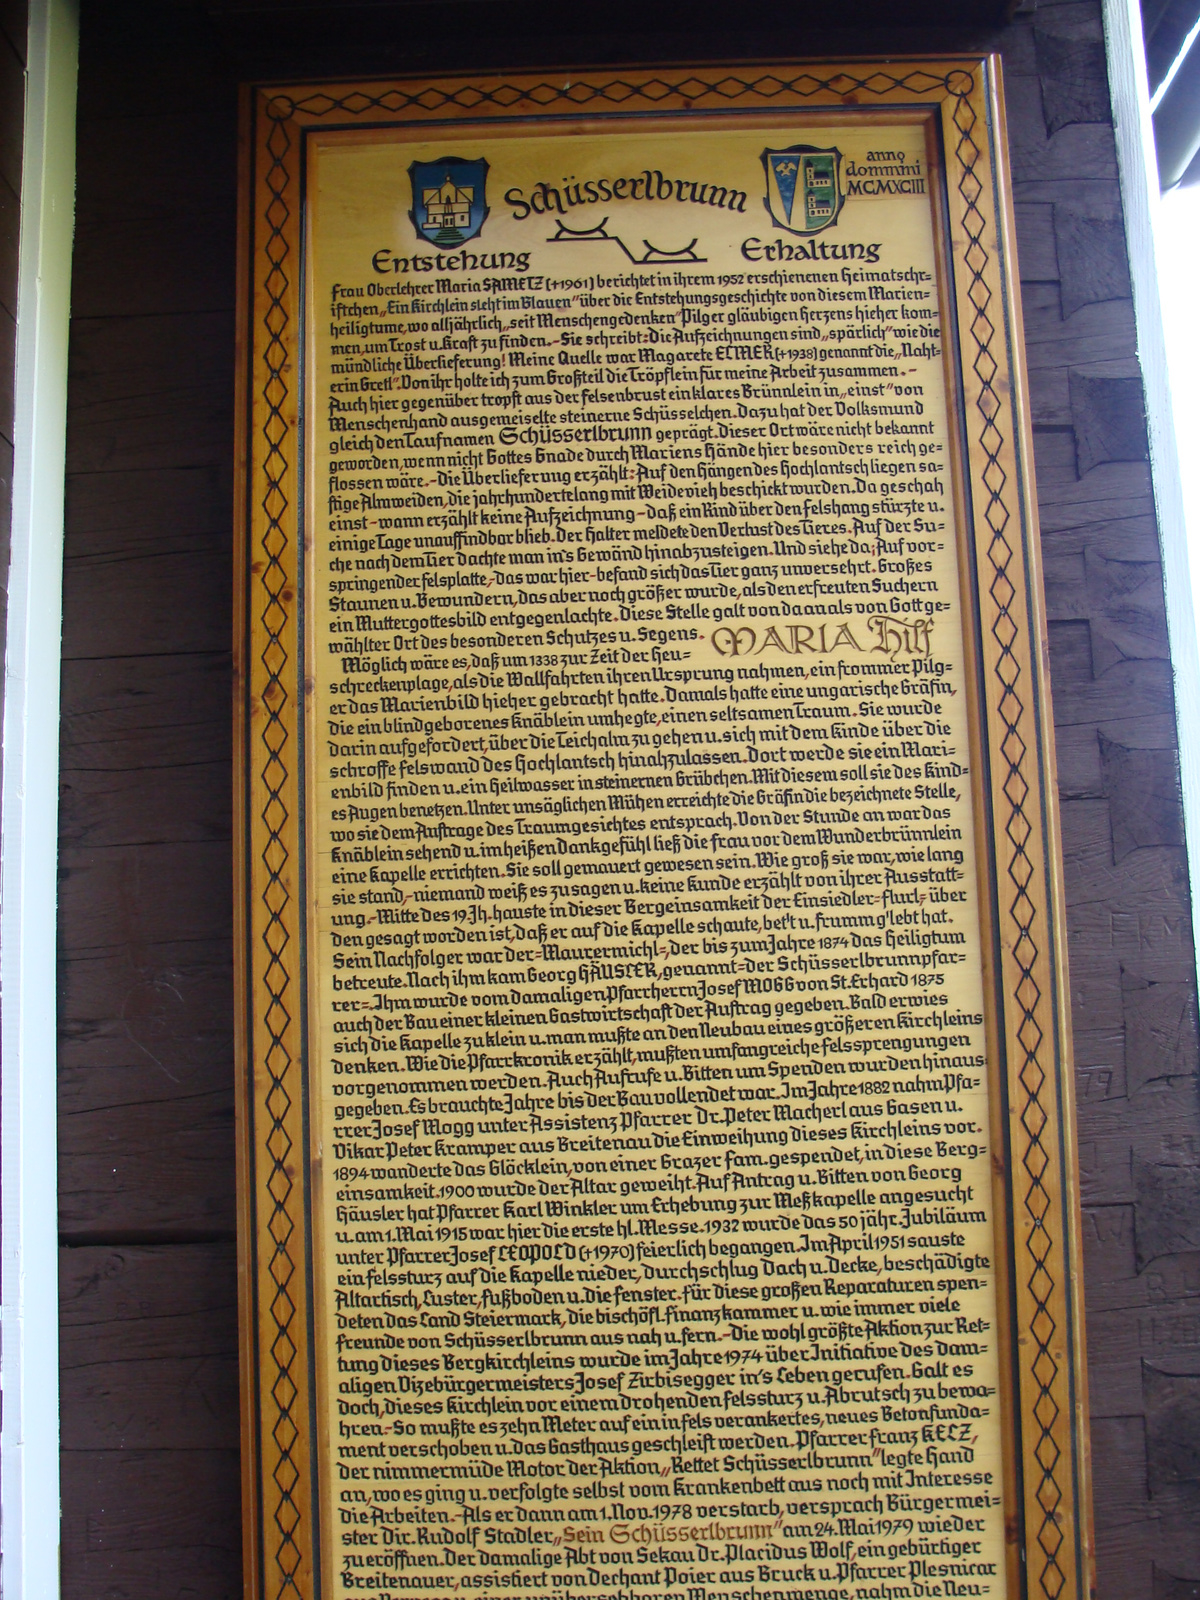 Schüsserlbrunn
anno
dommini
MCMXCIII
Entstehung
Erhaltung
Frau Oberlehrer Maria SAMETZ (+1961) berichtet in ihrem 1952 erschienenen Heimatschr=
iftchen „Ein Kirchlein steht im Blauen" über die Entstehungsgeschichte von diesem Marien=
heiligtume, wo alljährlich „seit Menschengedenken" Pilger gläubigen Herzens hieher kom=
men, um Trost u. Kraft zu finden.- Sie schreibt: Die Aufzeichnungen sind „spärlich" wie die
mündliche Überlieferung! Meine Quelle war Magarete ELMER (+1938) genannt die „Naht=
erin Gretl". Von ihr holte ich zum Großteil die Tröpflein für meine Arbeit zusammen.-
Auch hier gegenüber tropft aus der Felsenbrust ein klares Brünnlein in „einst" von
Menschenhand ausgemeiselte steinerne Schüsselchen. Dazu hat der Volksmund
gleich den Taufnamen Schüsserlbrunn geprägt. Dieser Ort wäre nicht bekannt
geworden, wenn nicht Gottes Gnade durch Mariens Hände hier besonders reich ge=
flossen wäre.- Die Überlieferung erzählt: Auf den Hängen des Hochlantsch liegen sa=
ftige Almweiden, die jahrhundertelang mit Weidevieh beschickt wurden. Da geschah
einst - wann erzählt keine Aufzeichnung - daß ein Rind über den Felshang stürzte u.
einige Tage unauffindbar blieb. Der Halter meldete den Verlust des Tieres. Auf der Su=
che nach dem Tier dachte man in's Gewänd hinabzusteigen. Und siehe da; Auf vor=
springender Felsplatte,- das war hier - befand sich das Tier ganz unversehrt. Großes
Staunen u. Bewundern, das aber noch größer wurde, als den erfreuten Suchern
ein Muttergottesbild entgegenlachte. Diese Stelle galt von da an als von Gott ge=
wählter Ort des besonderen Schutzes u. Segens. MARIA Hilf
Möglich wäre es, daß um 1338 zur Zeit der Heu=
schreckenplage, als die Wallfahrten ihren Ursprung nahmen, ein frommer Pilg=
er das Marienbild hieher gebracht hatte. Damals hatte eine ungarische Gräfin,
die ein blindgeborenes Knäblein umhegte, einen seltsamen Traum. Sie wurde
darin aufgefordert, über die Teichalm zu gehen u. sich mit dem Kinde über die
schroffe Felswand des Hochlantsch hinabzulassen. Dort werde sie ein Mari=
enbild finden u. ein Heilwasser in steinernen Grübchen. Mit diesem soll sie des Kind=
es Augen benetzen. Unter unsäglichen Mühen erreichte die Gräfin die bezeichnete Stelle,
wo sie dem Auftrage des Traumgesichtes entsprach. Von der Stunde an war das
Knäblein sehend u. im heißen Dankgefühl ließ die Frau vor dem Wunderbrünnlein
eine Kapelle errichten. Sie soll gemauert gewesen sein. Wie groß sie war, wie lang
sie stand,- niemand weiß es zu sagen u. keine Kunde erzählt von ihrer Ausstatt=
ung.- Mitte des 19. Jh. hauste in dieser Bergeinsamkeit der Einsiedler =Flurl= über
den gesagt worden ist, daß er auf die Kapelle schaute, bet't u. frumm g'lebt hat.
Sein Nachfolger war der =Maurermichl=, der bis zum Jahre 1874 das Heiligtum
betreute. Nach ihm kam Georg HÄUSLER, genannt =der Schüsserlbrunnpfar=
rer=. Ihm wurde vom damaligen Pfarrherrn Josef MOGG von St. Erhard 1875
auch der Bau einer kleinen Gastwirtschaft der Auftrag gegeben. Bald erwies
sich die Kapelle zu klein u. man mußte an den Neubau eines größeren Kirchleins
denken. Wie die Pfarrkronik erzählt, mußten umfangreiche Felssprengungen
vorgenommen werden. Auch Aufrufe u. Bitten um Spenden wurden hinaus=
gegeben. Es brauchte Jahre bis der Bau vollendet war. Im Jahre 1882 nahm Pfa=
rrer Josef Mogg unter Assistenz Pfarrer Dr. Peter Macherl aus Gasen u.
Vikar Peter Kramper aus Breitenau die Einweihung dieses Kirchleins vor.
1894 wanderte das Glöcklein, von einer Grazer Fam. gespendet, in diese Berg=
einsamkeit. 1900 wurde der Altar geweiht. Auf Antrag u. Bitten von Georg
Häusler hat Pfarrer Karl Winkler um Erhebung zur Meßkapelle angesucht
u. am 1. Mai 1915 war hier die erste hl. Messe. 1932 wurde das 50 jähr. Jubiläum
unter Pfarrer Josef LEOPOLD (+1970) feierlich begangen. Im April 1951 sauste
ein Felssturz auf die Kapelle nieder, durchschlug Dach u. Decke, beschädigte
Altartisch, Luster, Fußboden u. die Fenster. Für diese großen Reparaturen spen=
deten das Land Steiermark, die bischöfl. Finanzkammer u. wie immer viele
Freunde von Schüsserlbrunn aus nah u. fern.- Die wohl größte Aktion zur Ret=
tung dieses Bergkirchleins wurde im Jahre 1974 über Initiative des dam=
aligen Vizebürgermeisters Josef Zirbisegger in's Leben gerufen. Galt es
doch, dieses Kirchlein vor einem drohenden Felssturz u. Abrutsch zu bewa=
hren.- So mußte es zehn Meter auf ein in Fels verankertes, neues Betonfunda=
ment verschoben u. das Gasthaus geschleift werden. Pfarrer Franz KELZ,
der nimmermüde Motor der Aktion „Rettet Schüsserlbrunn" legte Hand
an, wo es ging u. verfolgte selbst vom Krankenbett aus noch mit Interesse
die Arbeiten.- Als er dann am 1. Nov. 1978 verstarb, versprach Bürgermei=
ster Dir. Rudolf Stadler „Sein Schüsserlbrunn" am 24. Mai 1979 wieder
zu eröffnen. Der damalige Abt von Sekau Dr. Placidus Wolf, ein gebürtiger
Breitenauer, assistiert von Dechant Poier aus Bruck u. Pfarrer Plesnicar
u. einer unübersehbaren Menschenmenge, nahm die Neu=